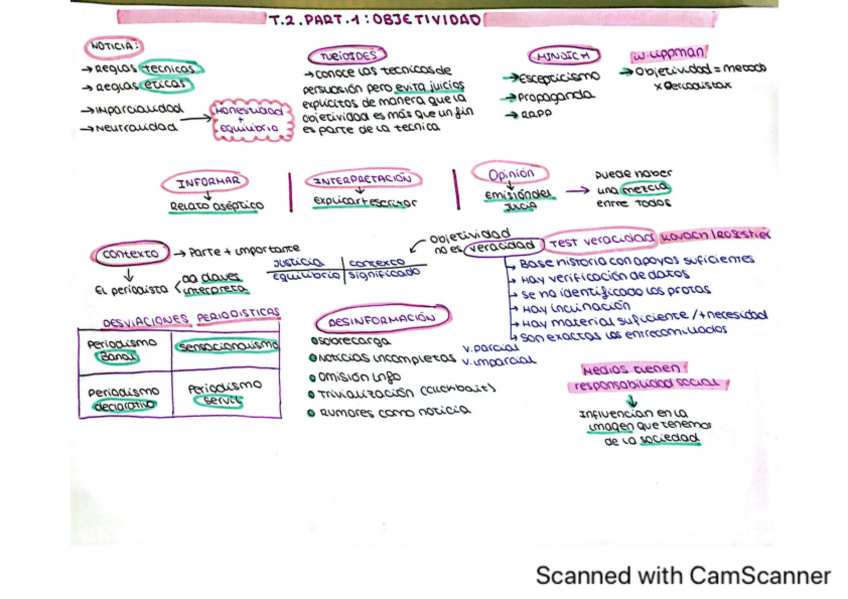 T.2. PART. 1: OBJETIVIDAD
NOTICIA:
→ Reglas tecnicas
→ Reglas eticas
→ Imparcialidad
→ Neutralidad
Honestidad
+
equilibrio
→ conoce las tecnicas de
persuasión pero evita juicios
explícitos de manera que la
objetividad es más que un fin
es parte de la tecnica
MINDICH
→ Escepticismo
→ Propaganda
→ RRPP
W. Lippman
→ Objetividad = metodo
x Periodistas
INFORMAR
Relato aséptico
INTERPRETACIÓN
explicar + escritor
Opinión
Emisión del
Juicio
→ puede haber
una mezcla
entre todos
CONTEXTO → Parte + importante
El periodista
da claves
interpreta
Justicia | contexto
equilibrio | significado
Objetividad
no es veracidad
TEST VERACIDAD
Base historia con apoyos suficientes
Hay verificación de datos
Se ha identificado los protas
Hay inclinación
Hay material suficiente / + necesidad
Son exactos los entrecomillados
DESVIACIONES PERIODISTICAS
Periodismo
Banal
sensacionalismo
Periodismo
declarativo
Periodismo
servil
DESINFORMACIÓN
Sobrecarga
Noticias incompletas
v. parcial
v. imparcial
Omisión info
Trivialización (clickbait)
Rumores como noticia
Medios tienen
responsabilidad social
Influencian en la
imagen que tenemos
de la sociedad
Scanned with CamScanner